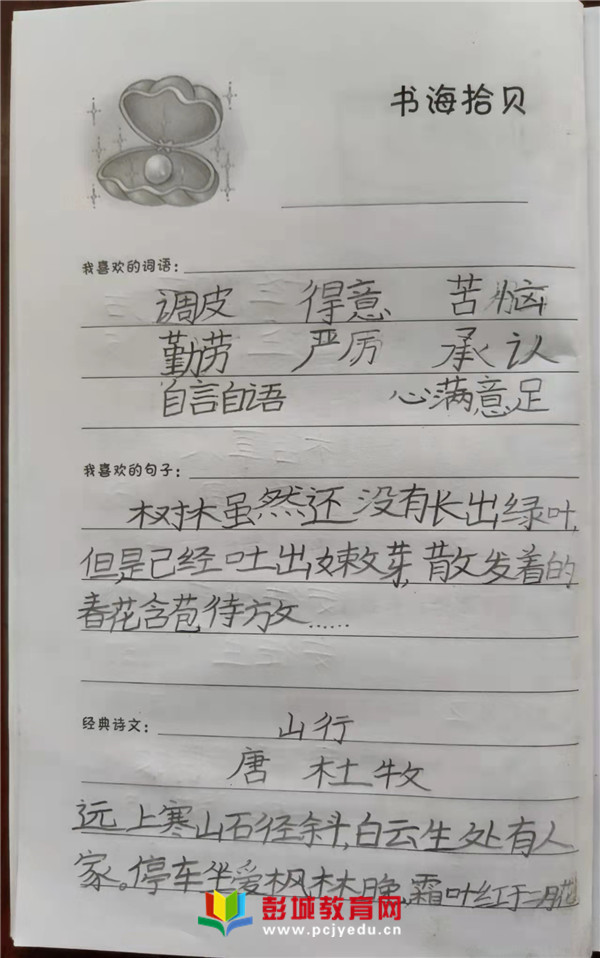 书海拾贝
我喜欢的词语：
调皮 得意 苦恼
勤劳 严厉 承认
自言自语 心满意足
我喜欢的句子：
树木虽然还没有长出绿叶，
但是已经吐出嫩芽，散发着的
春花含苞待放……
经典诗文：
山行
唐 杜牧
远上寒山石径斜，白云生处有人
家。停车坐爱枫林晚，霜叶红于二月花
彭城教育网
www.pcjyedu.cn